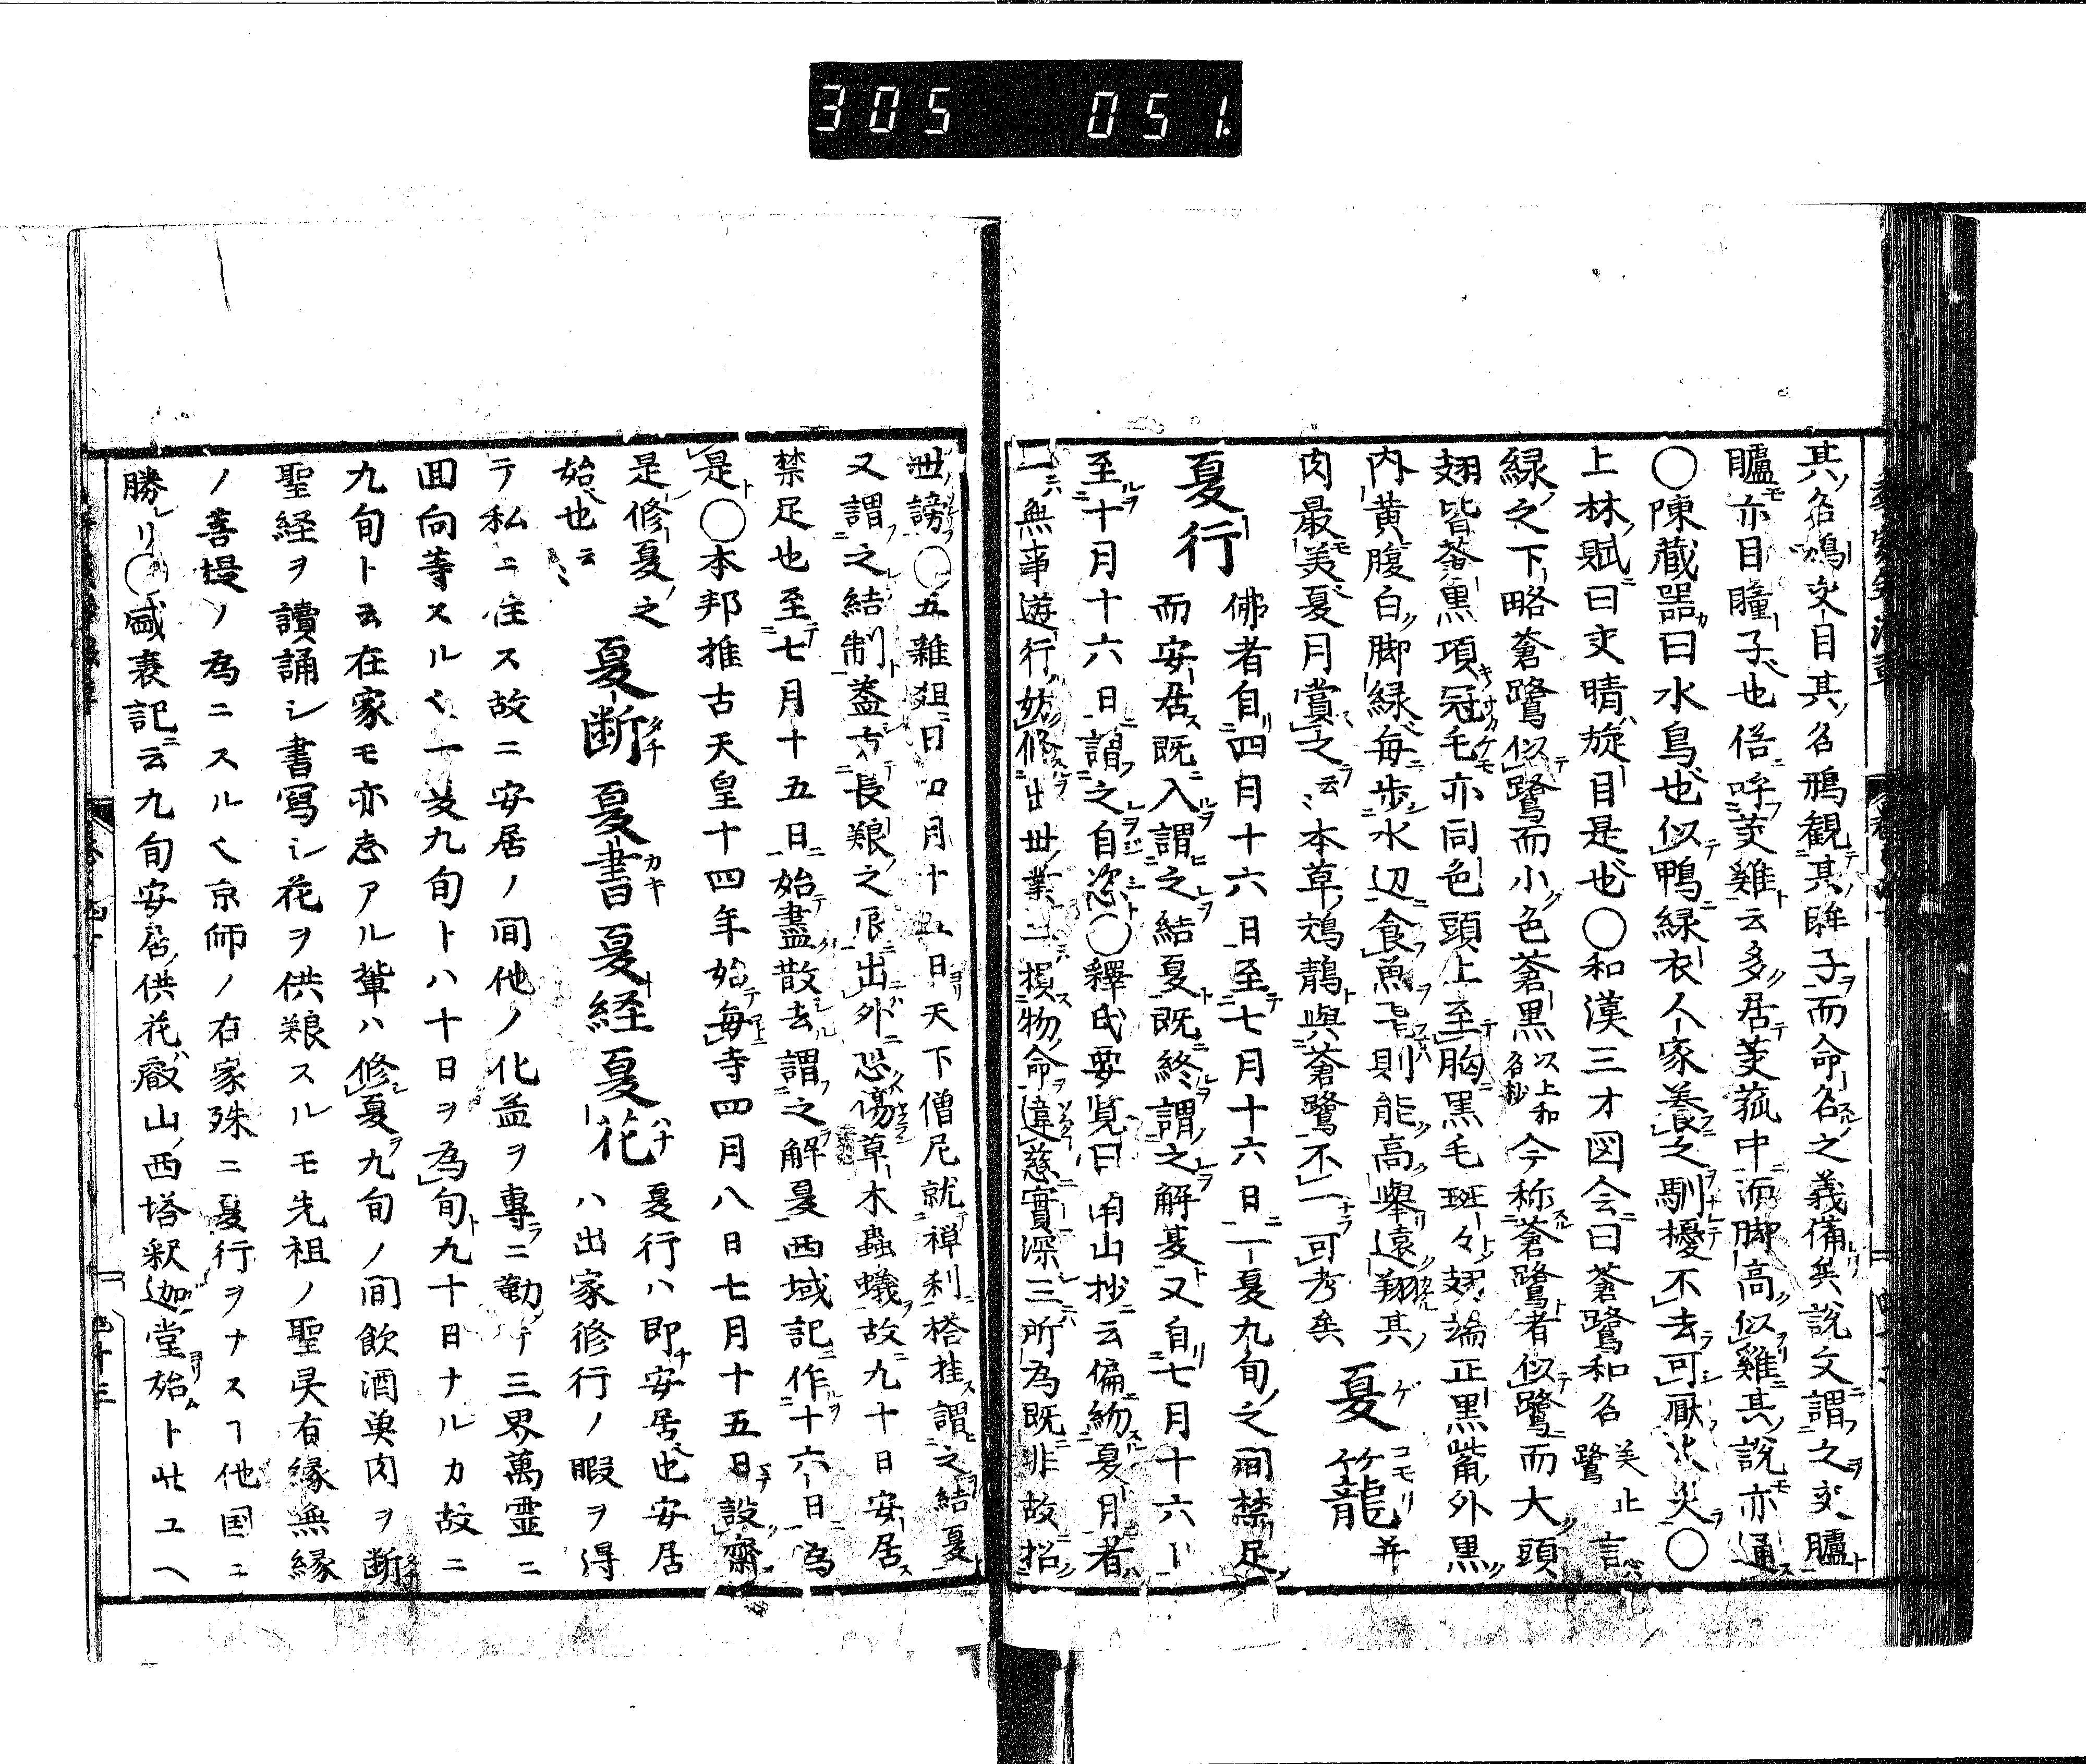 305 051.
其名鳽交目其名鳽観其眸子而命名之義備矣説文謂之交矑
矑亦目瞳子也俗呼茭雞云多居茭菰中而脚高似雞其説亦通
〇陳蔵器曰水鳥也似鴨緑衣人家養之馴擾不去可厭火災〇
上林賦曰交睛旋目是也〇和漢三才図会曰蒼鷺和名美止言鷺
緑之下略蒼鷺似鷺而小色蒼黒以上和名抄今称蒼鷺者似鷺而大頭
翅皆蒼黒項冠毛亦同色頭上至胸黒毛斑々翅端正黒觜外黒
内黄腹白脚緑毎歩水辺食魚則能高挙遠翔其
肉最美夏月賞之云々本草鵁鶄與蒼鷺不一可考矣 夏籠 ゲコモリ 并
夏行 佛者自四月十六日至七月十六日一夏九旬之間禁足
而安居既入謂之結夏既終謂之解夏又自七月十六日
至十月十六日謂之自恣〇釋氏要覧曰南山抄云偏約夏月者
一無事遊行妨修出世業二損物命違慈實深三所為既非故招
世謗〇五雜俎曰四月十五日天下僧尼就禅刹搭挂謂之結夏
又謂之結制蓋方長養之辰出外恐傷草木蟲蟻故九十日安居
禁足也至七月十五日始盡散去謂之解夏西域記作十六日為
是〇本邦推古天皇十四年始毎寺四月八日七月十五日設齋
是修夏之始也云々 夏断 ダチ 夏書 カキ 夏経 夏花 ハナ 夏行ハ即安居也安居ハ出家修行ノ暇ヲ得
テ私ニ住ス故ニ安居ノ間他ノ化益ヲ專ニ勤テ三界萬霊ニ
回向等スルく一夏九旬トハ十日ヲ為旬九十日ナルカ故ニ
九旬ト云在家モ亦志アル輩ハ修夏九旬ノ間飲酒魚肉ヲ断
聖経ヲ讀誦シ書寫シ花ヲ供養スルモ先祖ノ聖㚑有縁無縁
ノ菩提ノ為ニスルく京師ノ右家殊ニ夏行ヲナスヿ他国ニ
勝レリ〇盛衰記云九旬安居供花叡山西塔釈迦堂始ト此ユヘ